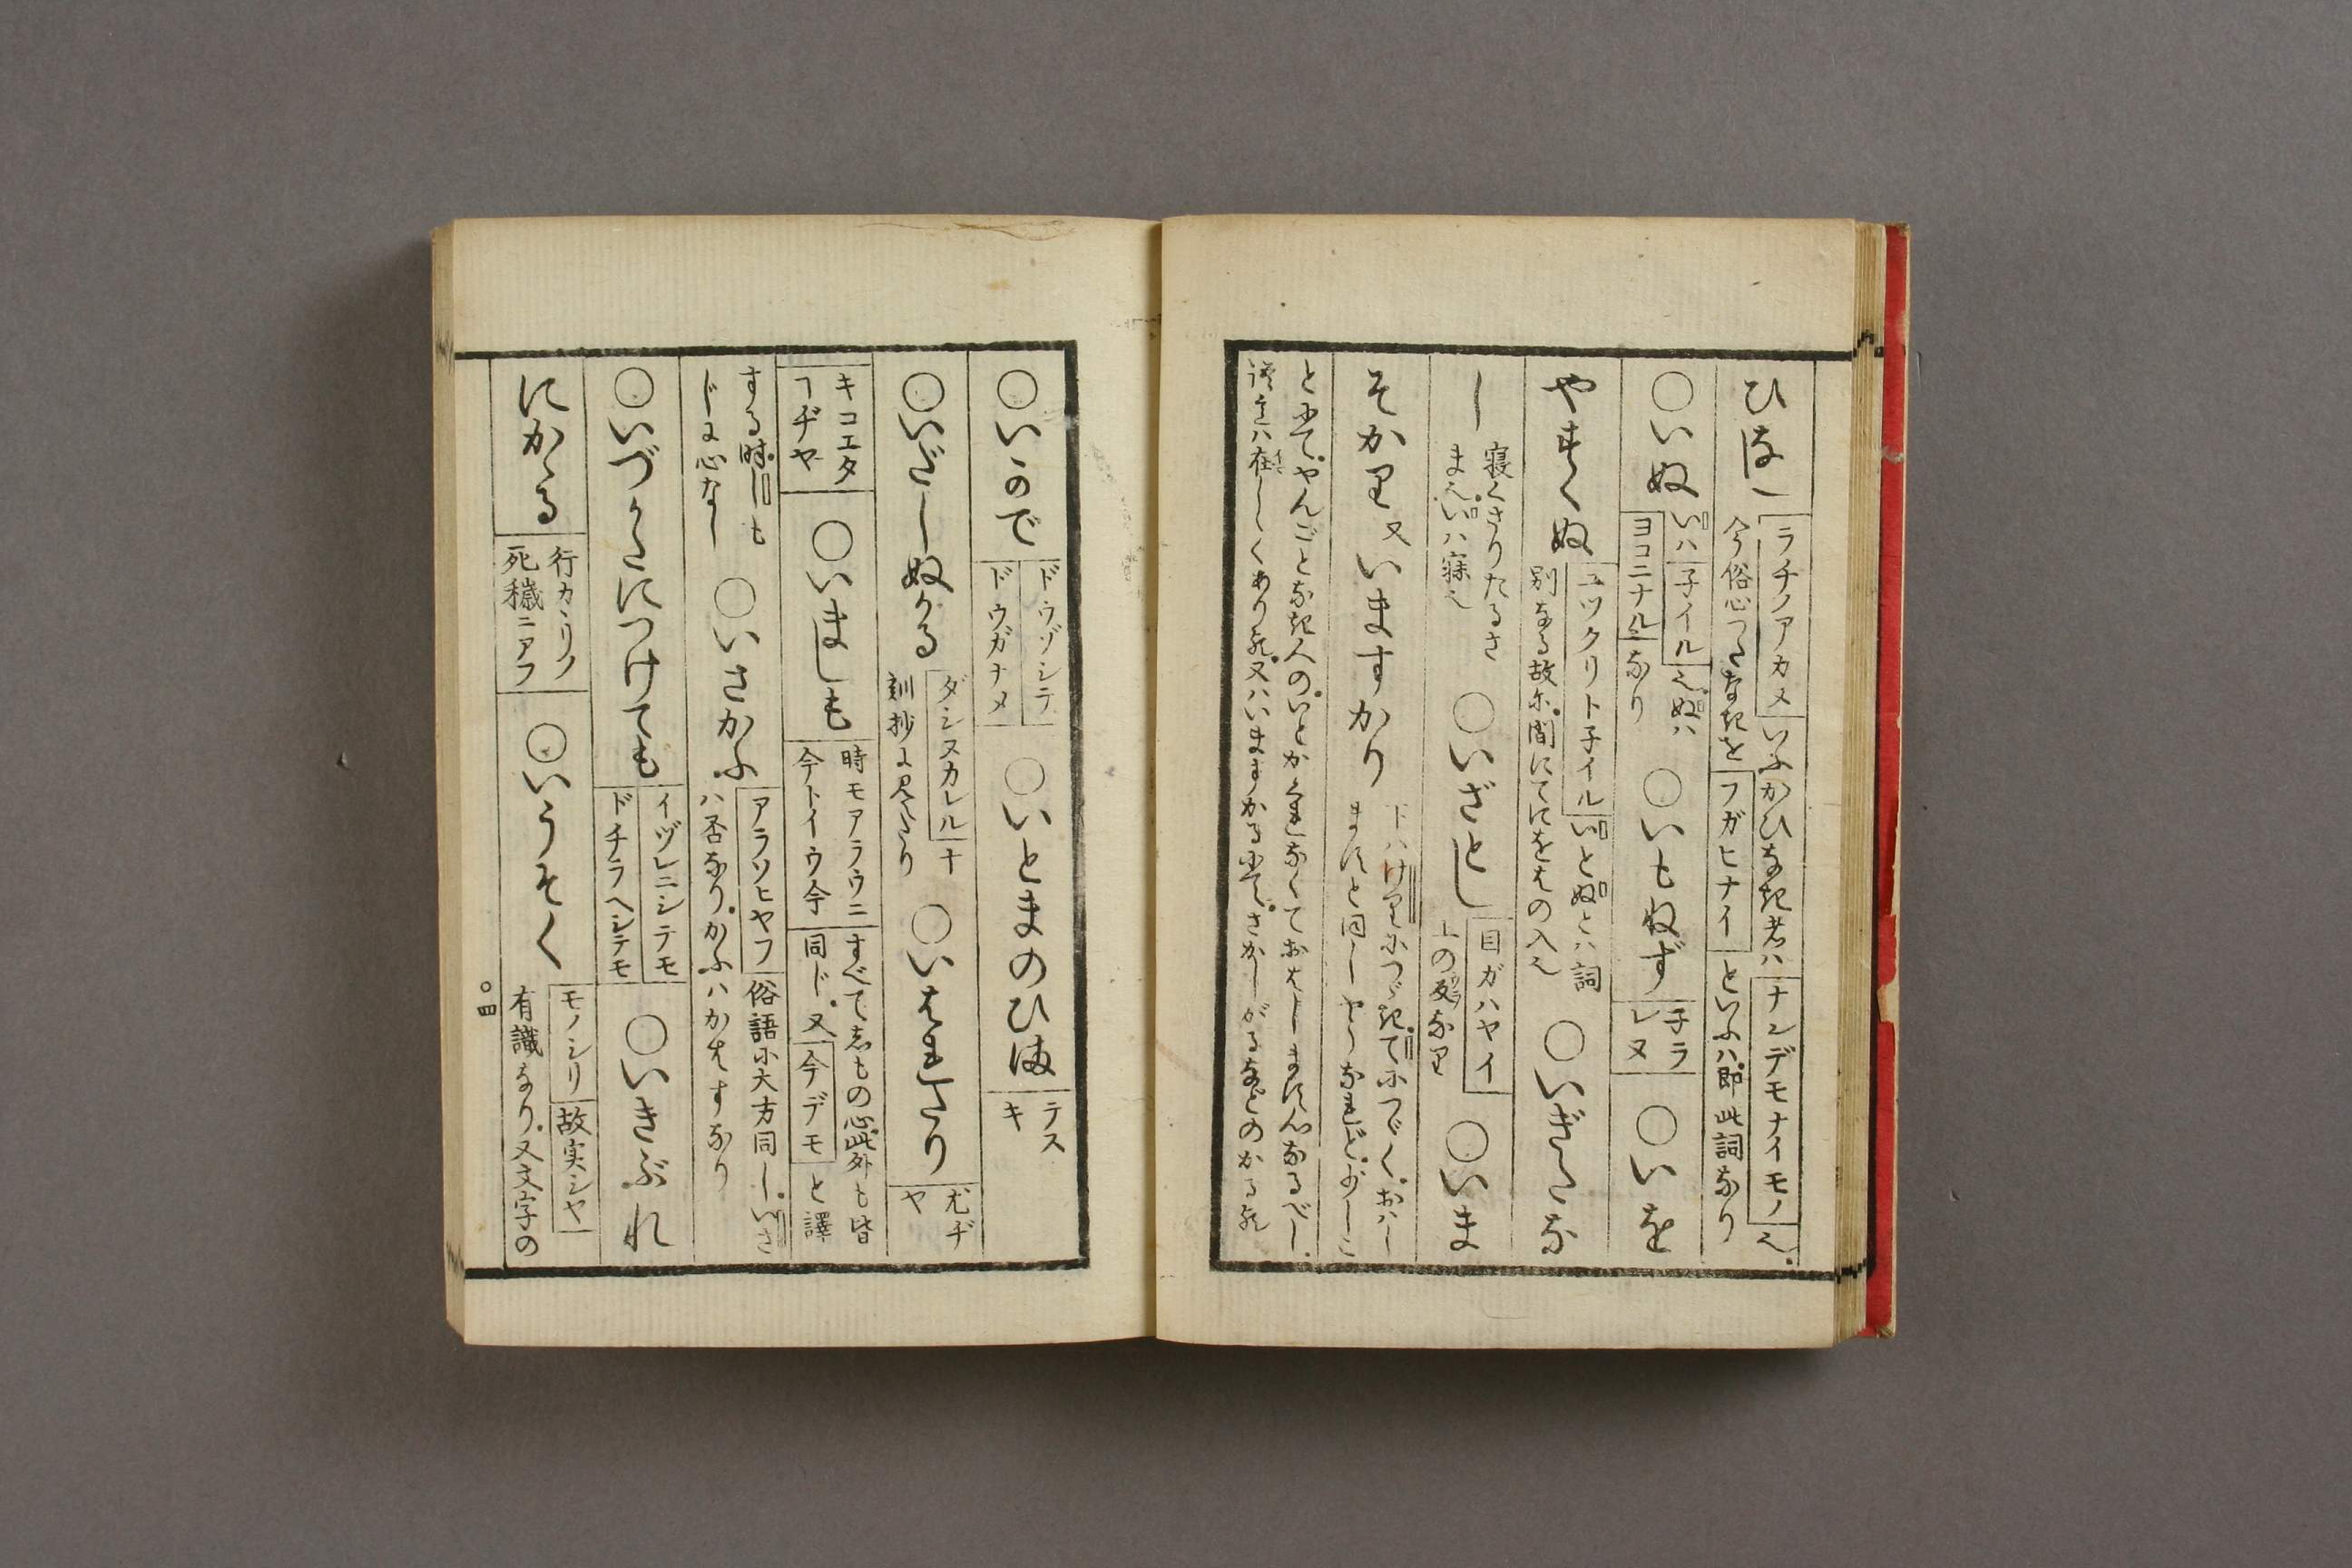 ひなし ラチノアカヌ いふかひなき者ハ ナンデモナイモノ 也
今俗心つたなきを フガヒナイ といふハ即此詞なり
○いぬ いハ 子イル 也ぬハ
ヨコニナル なり ○いもねず 子ラ
レヌ ○いを
やすくぬ ユツクリト子イル いとぬとハ詞
別なる故に間にてにをはの入也 ○いぎたな
し 寝くさりたるさ
ま也いハ寐也 ○いざとし 目ガハヤイ
上の反なり ○いま
そかり 又いますかり 下ハけりにつゞきてにつゞくおハし
ますと同しやうなれど少しこ
とにてやんごとなき人のいとかくれなくておはしますんなるべし
在しくあり 又ハいますかるにてさかしがるなどのかる
○いかで ドウゾシテ
ドウガナメ ○いとまのひま テス
キ
○いだしぬかる ダシヌカレル ナ
剞抄に見えたり ○いはれたり 尤ヂ
ヤ
キコエタ
ヿヂヤ ○いましも 時モアラウニ
今トイウ今 すべてしもの心此外も皆
同ド又 今デモ と譯
する時しも
じに心なし ○いさかふ アラソヒヤフ 俗語に大方同し いさ
ハ否なりかふハかはすなり
○いづかたにつけても イヅレニシテモ
ドチラヘシテモ ○いきぶれ
にかゝる 行カヽリノ
死穢ニアフ ○いうそく モノシリ 故実シヤ
有識なり又文字の
○四